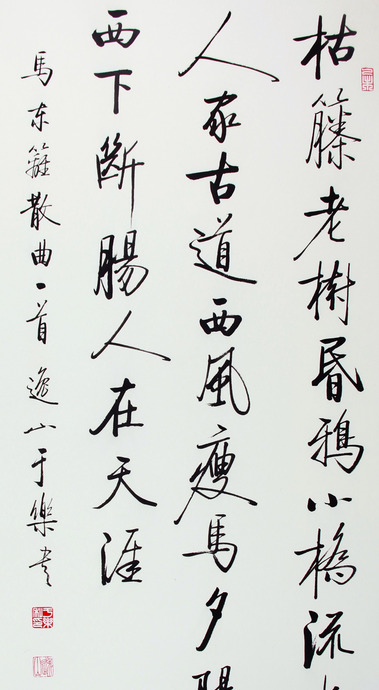 枯籐老樹昏鴉小橋流
人家古道西風瘦馬夕陽
西下斷腸人在天涯
馬東籬散曲一首 逸山于樂書